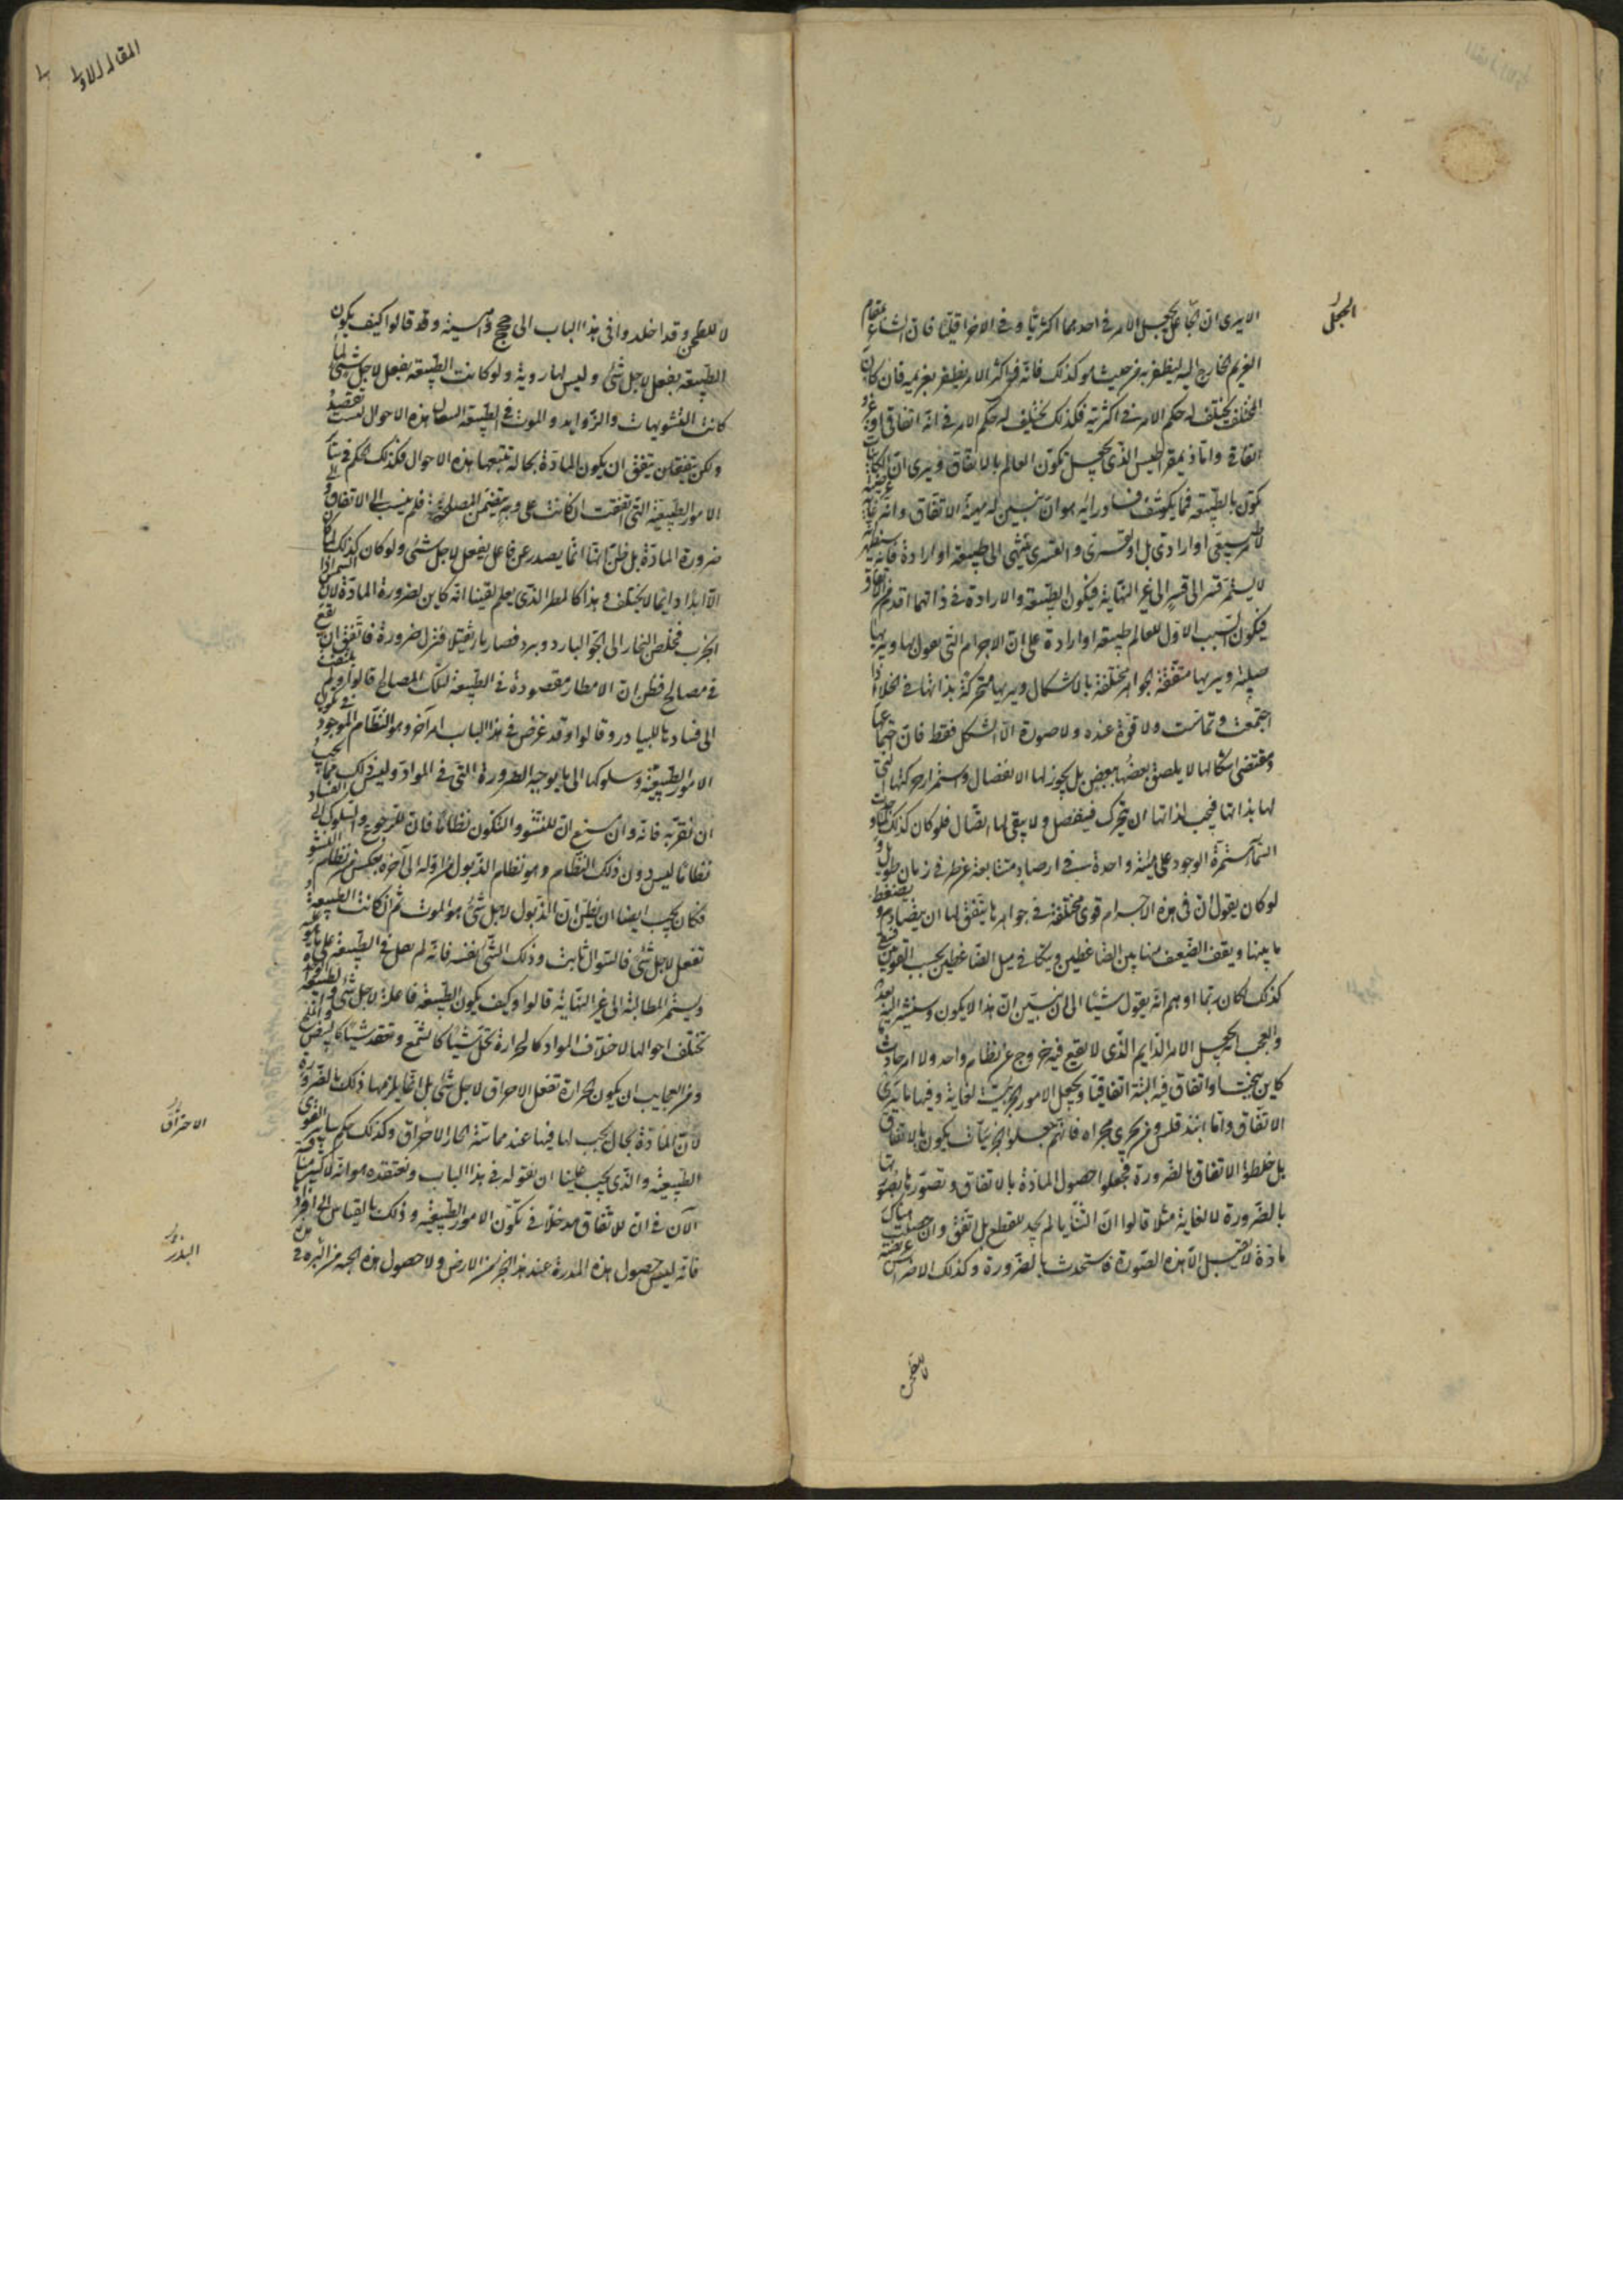 الا يرى ان الجاعل يجعل الامر في احدهما اكثريا وفي الاخر اقليا فان الشاعر بمقام
الغريم الخارج اليه ليظفر به من حيث هو كذلك فانه في اكثر الامر يظفر بغريمه فان كان
المختلف يختلف له حكم الامر في اكثريته فكذلك يختلف له حكم الامر في انه اتفاقي او غير
اتفاقي واما ذيمقراطيس الذي يجعل تكون العالم بالاتفاق ويرى ان الكاينات
تكون بالطبيعة فمما يكشف فساد رايه هو ان نبين له مهية الاتفاق وانه غاية عرضية
لامر طبيعي او ارادي بل او قسري والقسري ينتهي الى طبيعة او ارادة فانه سيظهر انه
لا يستمر قسر الى قسر الى غير النهاية فيكون الطبيعة والارادة في ذاتهما اقدم من الاتفاق
فيكون السبب الاول للعالم طبيعة او ارادة على ان الاجرام التي يقول بها ويريها
صلبة ويريها متفقة بجواهر مختلفة بالاشكال ويريها متحركة بذاتها في الخلاء اذا
اجتمعت وتماست ولا قوة عنده ولا صورة الا الشكل فقط فان اجتماعها
ومقتضى اشكالها لا يلصق بعضها ببعض بل يجوز لها الانفصال واستمرار حركتها التي
لها بذاتها فيجب لذاتها ان يتحرك فينفصل ولا يبقى لها اتصال فلو كان كذلك لما وجدت
السماء مستمرة الوجود على هيئة واحدة في ارصاد متتابعة في زمان طويل و
لو كان يقول ان في هذه الاجرام قوى مختلفة في جواهرها يتفق لها ان يتصادم و يضغط
ما بينها ويقف الضعيف منها بين الضاغطين ويتكافى ميل الضاغطين بحسب القوتين فيبقى
كذلك لكان ربما اوهم انه يقول شيئا الى ان نبين ان هذا لا يكون وسنشير اليه بعد
والعجب انه يجعل الامر الدايم الذي لا يقع فيه خروج عن نظام واحد ولا امر حادث
كاين ببخت او اتفاق فيه البتة اتفاقيا ويجعل الامور الجزئية لغاية وفيها ما يرى
الاتفاق واما انبذقلس ومن يجري مجراه فانهم جعلوا الجزئيات يكون بالاتفاق
بل خلطوا الاتفاق بالضرورة فجعلوا حصول المادة بالاتفاق وتصورها بصورتها
بالضرورة لا لغاية مثلا قالوا ان الثنايا لم يحد للقطع بل اتفق وان حصلت هناك
مادة لا تقبل الا هذه الصورة فاستحدت بالضرورة وكذلك الاضراس عريضة
للطحن
المقالة الاولى
لا للطحن وقد اخلدوا في هذا الباب الى حجج واهية وقالوا كيف يكون
الطبيعة يفعل لاجل شيء وليس لها روية ولو كانت الطبيعة يفعل لاجل شيء لما
كانت التشويهات والزوايد والموت في الطبيعة البتة هذه الاحوال ليست بقصد
ولكن يتفق ان يكون المادة بحالة تتبعها هذه الاحوال فكذلك الحكم في ساير
الامور الطبيعية التي اتفقت ان كانت على وجه يتضمن المصلحة فلم ينسب الى الاتفاق و
ضرورة المادة بل ظن انها انما يصدر عن فاعل يفعل لاجل شيء ولو كان كذلك لما كان
الا ابدا دايما لا يختلف وهذا كالمطر الذي يعلم يقينا انه كاين لضرورة المادة لان الشمس اذا
ابخرت فخلص البخار الى الجو البارد وبرد فصار ماء ثقيلا فنزل ضرورة فاتفق ان يقع
في مصالح فظن ان الامطار مقصودة في الطبيعة لتلك المصالح قالوا ولم يلتفت
الى فسادها للبيادر وقالوا وقد عرض في هذا الباب امر آخر وهو النظام الموجود في تكون
الامور الطبيعية وسلوكها الى ما يوجبه الضرورة التي في المواد وليس ذلك مما يجب
ان نغتر به فانه وان سلم ان للنشو والتكون نظاما فان للرجوع والسلوك الى الفساد
نظاما ليس دون ذلك النظام وهو نظام الذبول من اوله الى آخره بعكس من نظام النشو
فكان يجب ايضا ان يظن ان الذبول لاجل شيء هو الموت ثم ان كانت الطبيعة
تفعل لاجل شيء فالسؤال ثابت وذلك الشيء نفسه فانه لم فعل في الطبيعة على ما هو عليه
ويستمر المطالبة الى غير النهاية قالوا وكيف يكون الطبيعة فاعلة لاجل شيء والطبيعة الواحدة
تختلف احوالها لاختلاف المواد كالحرارة تحل شيئا كالشمع وتعقد شيئا كالبيض والملح
ومن العجايب ان يكون الحرارة تفعل الاحراق لاجل شيء بل انما يلزمها ذلك بالضرورة
لان المادة بحال يجب لها فيها عند مماسة الحار الاحراق وكذلك حكم ساير القوى
الطبيعية والذي يجب علينا ان نقوله في هذا الباب ونعتقده هو انه لا كثير مناقشة
الآن في ان للاتفاق مدخلا في تكون الامور الطبيعية وذلك بالقياس الى افرادها
فانه ليس حصول هذه المدرة عند هذا الجزء من الارض ولا حصول هذه الحبة من البر
الاحتراق